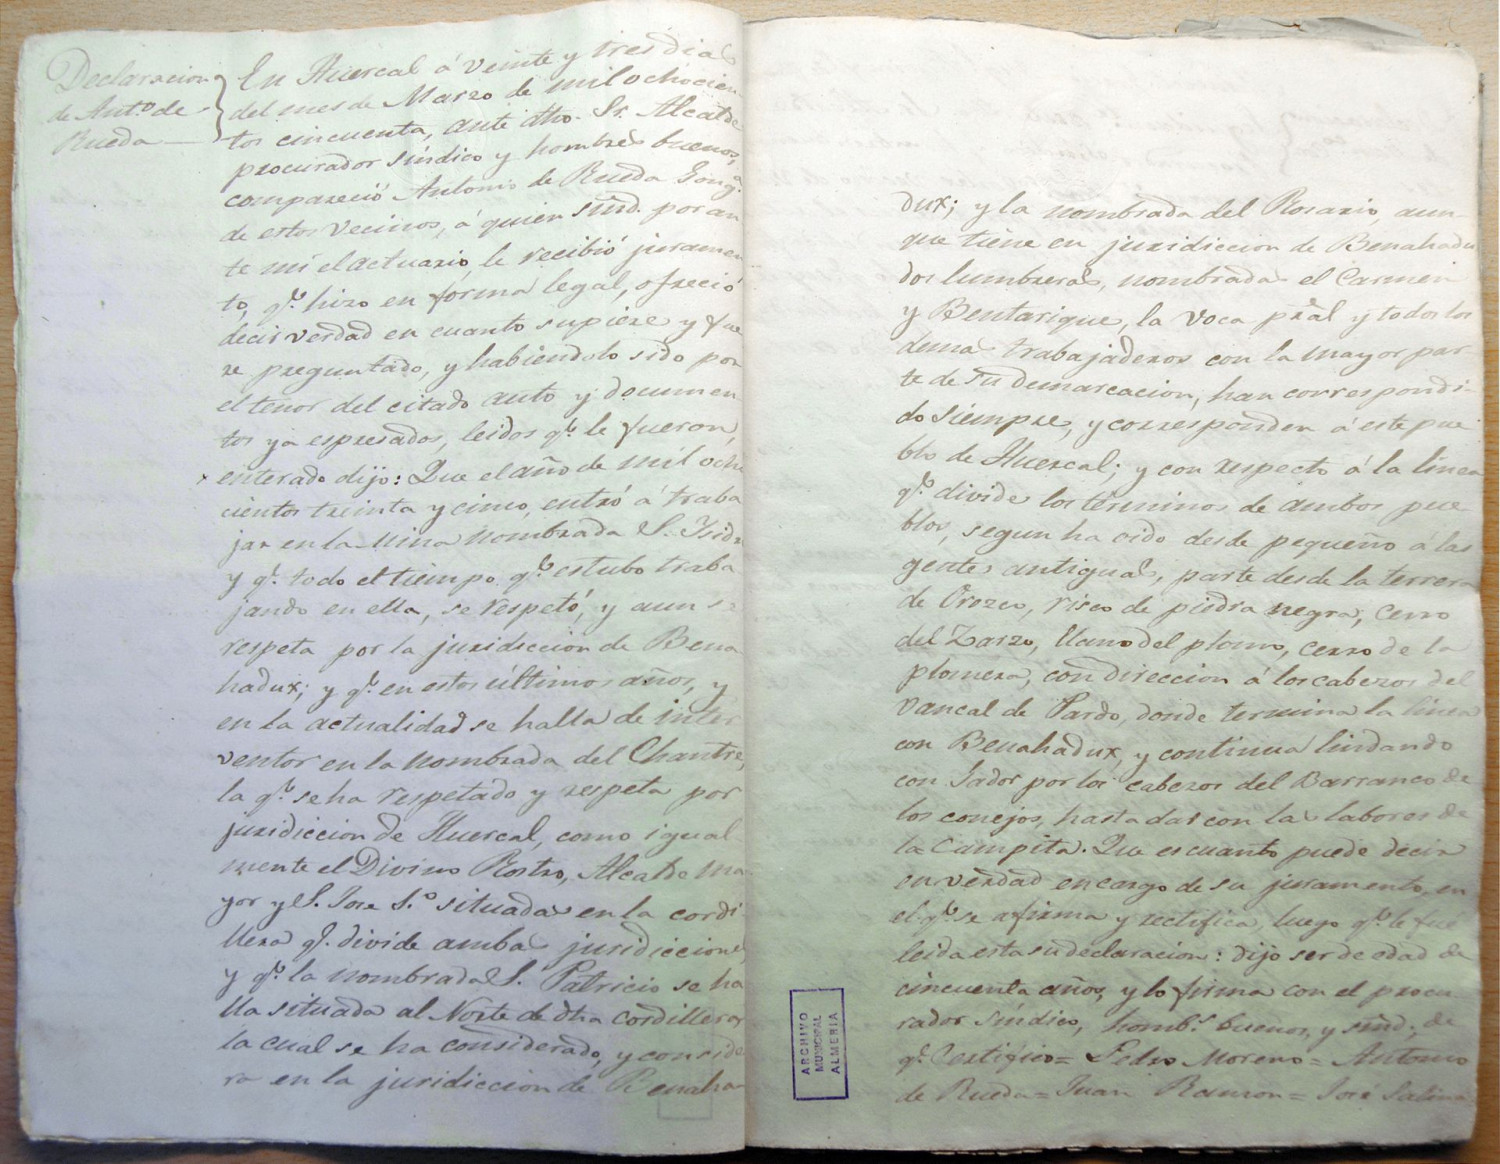 Declaracion
de Anto. de
Rueda
En Huercal á veinte y tres dias
del mes de Marzo de mil ochocien
tos cincuenta, ante dho. Sr. Alcalde
procurador síndico y hombres buenos,
compareció Antonio de Rueda Gongª.
de estos vecinos, á quien smd. por an
te mí el actuario, le recibió juramen
to, q.e hizo en forma legal, ofreció
decir verdad en cuanto supiere y fue
re preguntado, y habiendolo sido por
el tenor del citado auto y documen
tos ya espresados, leidos q.e le fueron,
enterado dijo: Que el año de mil ocho
cientos treinta y cinco, entró á traba
jar en la Mina nombrada S. Isidro
y q.e todo el tiempo q.e estubo traba
jando en ella, se respetó, y aun se
respeta por la juridiccion de Bena
hadux; y q.e en estos últimos años, y
en la actualidad se halla de inter
ventor en la nombrada del Chantre,
la q.e se ha respetado y respeta por
juridiccion de Huercal, como igual
mente el Divino Rostro, Alcalde ma
yor y S. Jose S.º situadas en la cordi
llera q.e divide ambas juridicciones,
y q.e la nombrada S. Patricio se ha
lla situada al Norte de dha cordillera
la cual se ha considerado, y conside
ra en la juridiccion de Benaha
dux; y la nombrada del Rosario, aun-
que tiene en juridiccion de Benahadux
dos lumbreras, nombradas el Carmen
y Bentarique, la voca pral y todos los
demas trabajaderos con la mayor par-
te de su demarcacion, han correspondi-
do siempre, y corresponden á este pue
blo de Huercal; y con respecto á la linea
q.e divide los términos de ambos pue-
blos, segun ha oido desde pequeño á las
gentes antiguas, parte desde la terrera
de Orozco, risco de piedra negra, cerro
del Zarzo, llano del plomo, cerro de la
plomera, con direccion á los cabezos del
vancal de Pardo, donde termina la linea
con Benahadux, y continua lindando
con Gador por los cabezos del Barranco de
los conejos, hasta dar con las labores de
la Campita. Que es cuanto puede decir
en verdad en cargo de su juramento, en
el q.e se afirma y rectifica, luego q.e le fué
leida esta su declaracion: dijo ser de edad de
cincuenta años, y lo firma con el procu-
rador síndico, homb.s buenos, y smd. de
q.e Certifico = Pedro Moreno = Antonio
de Rueda = Juan Ramon = José Salinas
ARCHIVO
MUNICIPAL
ALMERIA